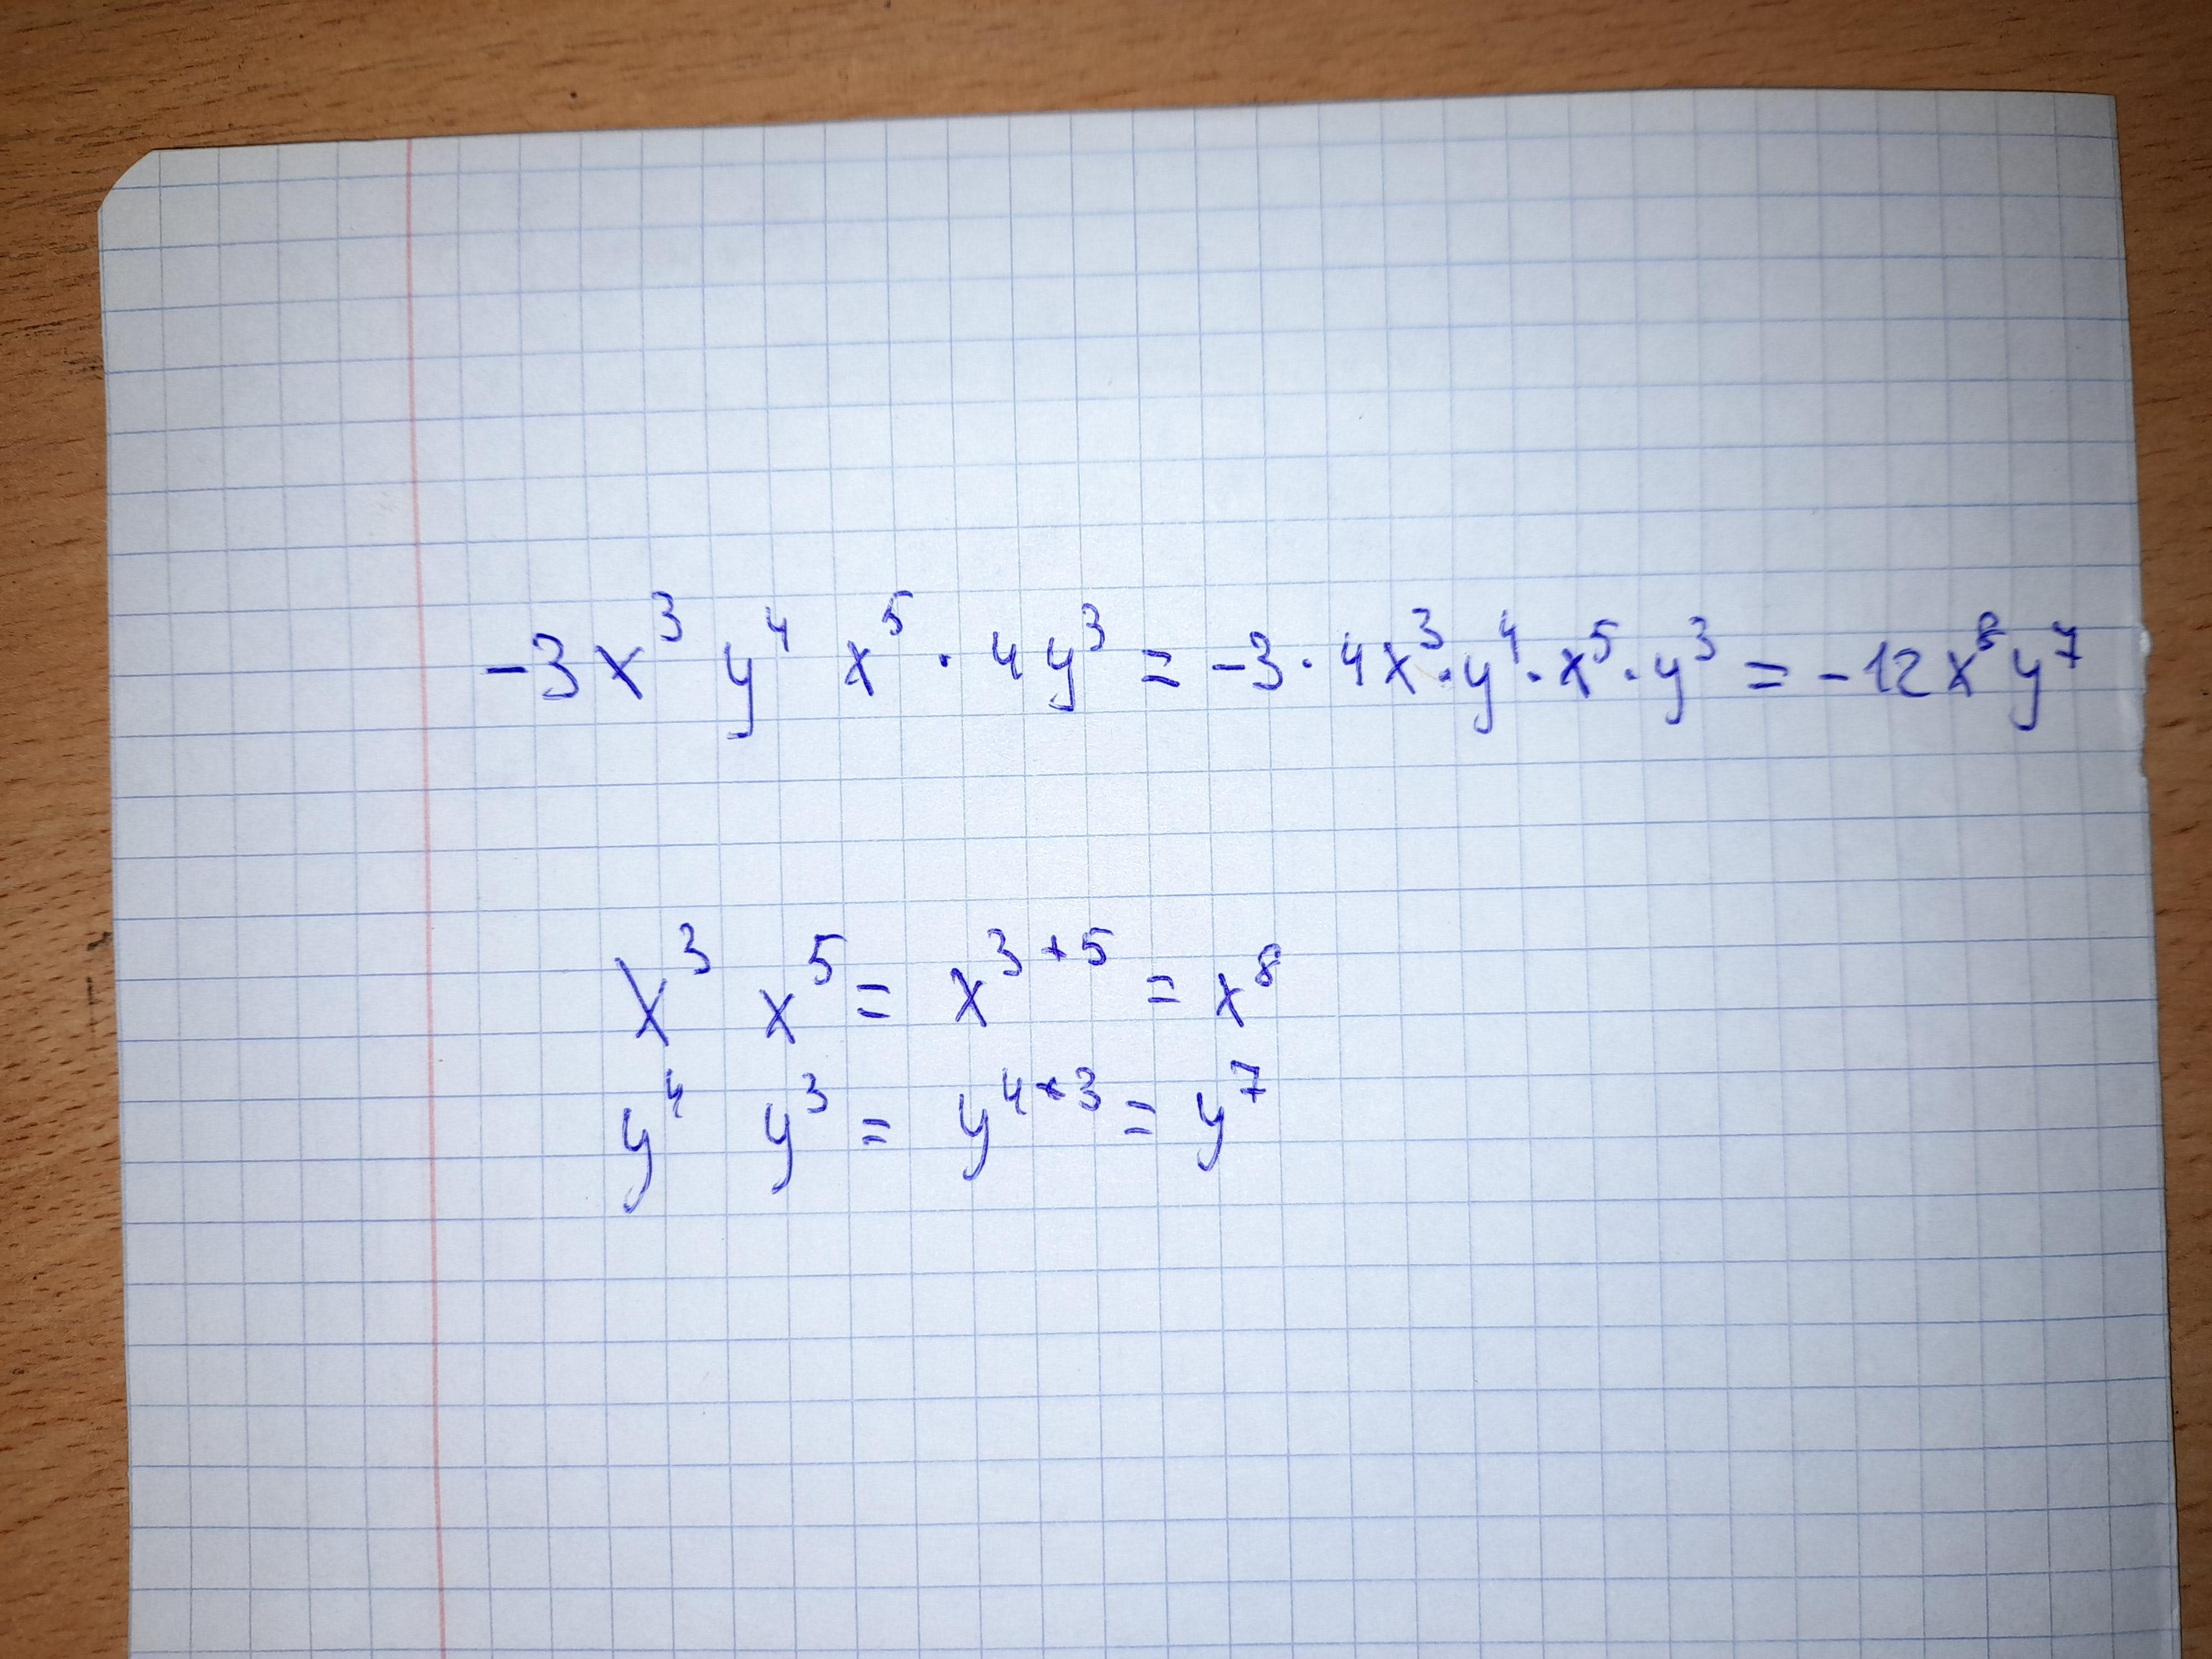 -3x³ y⁴ x⁵ · 4y³ = -3 · 4x³ · y⁴ · x⁵ · y³ = -12x⁸y⁷
x³ x⁵ = x³⁺⁵ = x⁸
y⁴ y³ = y⁴⁺³ = y⁷